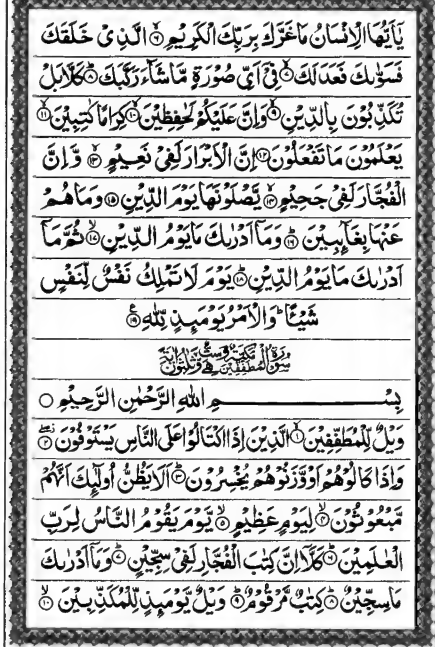 يٰۤاَيُّهَا الْاِنْسَانُ مَا غَرَّكَ بِرَبِّكَ الْكَرِيْمِ ۙ﴿۶﴾ الَّذِىْ خَلَقَكَ
فَسَوّٰىكَ فَعَدَلَكَ ۙ﴿۷﴾ فِىْۤ اَىِّ صُوْرَةٍ مَّا شَآءَ رَكَّبَكَ ؕ﴿۸﴾ كَلَّا بَلْ
تُكَذِّبُوْنَ بِالدِّيْنِ ۙ﴿۹﴾ وَاِنَّ عَلَيْكُمْ لَحٰفِظِيْنَ ۙ﴿۱۰﴾ كِرَامًا كٰتِبِيْنَ ۙ﴿۱۱﴾
يَعْلَمُوْنَ مَا تَفْعَلُوْنَ ﴿۱۲﴾ اِنَّ الْاَبْرَارَ لَفِىْ نَعِيْمٍ ۚ﴿۱۳﴾ وَّاِنَّ
الْفُجَّارَ لَفِىْ جَحِيْمٍ ۚ﴿۱۴﴾ يَّصْلَوْنَهَا يَوْمَ الدِّيْنِ ﴿۱۵﴾ وَمَا هُمْ
عَنْهَا بِغَآئِبِيْنَ ؕ﴿۱۶﴾ وَمَاۤ اَدْرٰىكَ مَا يَوْمُ الدِّيْنِ ۙ﴿۱۷﴾ ثُمَّ مَاۤ
اَدْرٰىكَ مَا يَوْمُ الدِّيْنِ ؕ﴿۱۸﴾ يَوْمَ لَا تَمْلِكُ نَفْسٌ لِّنَفْسٍ
شَيْـًٔا ؕ وَالْاَمْرُ يَوْمَئِذٍ لِّلّٰهِ ﴿۱۹﴾ ع
سُوْرَةُ الْمُطَفِّفِيْنَ مَكِّيَّةٌ وَّهِىَ سِتٌّ وَّثَلٰثُوْنَ اٰيَةً
بِسْمِ اللّٰهِ الرَّحْمٰنِ الرَّحِيْمِ
وَيْلٌ لِّلْمُطَفِّفِيْنَ ۙ﴿۱﴾ الَّذِيْنَ اِذَا اكْتَالُوْا عَلَى النَّاسِ يَسْتَوْفُوْنَ ۖ﴿۲﴾
وَاِذَا كَالُوْهُمْ اَوْ وَّزَنُوْهُمْ يُخْسِرُوْنَ ؕ﴿۳﴾ اَلَا يَظُنُّ اُولٰٓئِكَ اَنَّهُمْ
مَّبْعُوْثُوْنَ ۙ﴿۴﴾ لِيَوْمٍ عَظِيْمٍ ۙ﴿۵﴾ يَّوْمَ يَقُوْمُ النَّاسُ لِرَبِّ
الْعٰلَمِيْنَ ؕ﴿۶﴾ كَلَّاۤ اِنَّ كِتٰبَ الْفُجَّارِ لَفِىْ سِجِّيْنٍ ؕ﴿۷﴾ وَمَاۤ اَدْرٰىكَ
مَا سِجِّيْنٌ ؕ﴿۸﴾ كِتٰبٌ مَّرْقُوْمٌ ؕ﴿۹﴾ وَيْلٌ يَّوْمَئِذٍ لِّلْمُكَذِّبِيْنَ ۙ﴿۱۰﴾